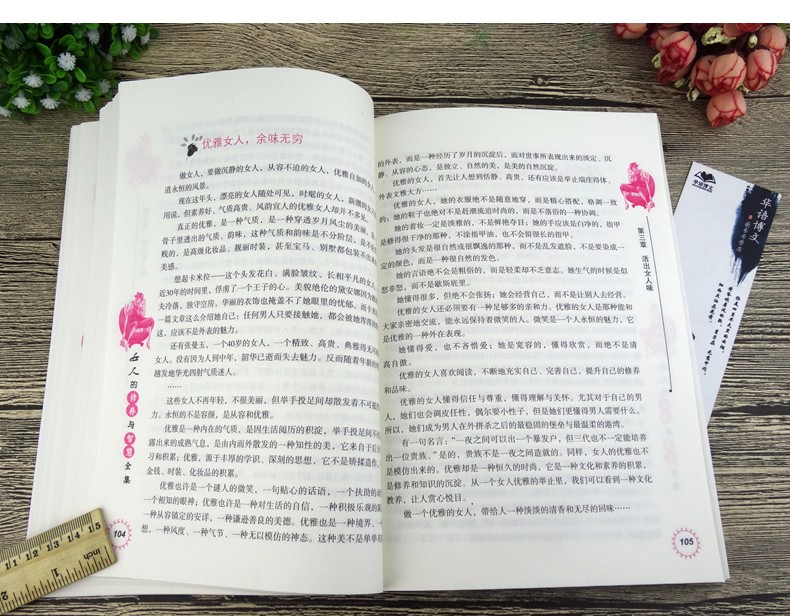 优雅女人，余味无穷
做女人，要做沉静的女人，从容不迫的女人，优雅自如的女人
道永恒的风景。
现在这年头，漂亮的女人随处可见，时髦的女人，新潮的女人
用说，但素养好、气质高贵、风韵宜人的优雅女人却并不多见。
真正的优雅，是一种气质，是一种穿透岁月风尘的美丽，
骨子里透出的气质、韵味，这种气质和韵味是不分阶层，是不
贱的，是高级化妆品、靓丽时装，甚至宝马、别墅都包装不出来
美感。
想起卡米拉——这个头发花白、满脸皱纹、长相平凡的女人
近30年的时间里，俘虏了一个王子的心。美貌绝伦的黛安娜因为
夫冷落，独守空房，华丽的衣饰也掩盖不了她眼里的忧郁。而
一篇文章这么介绍她自己：任何男人只要接触她，都会被她
这，应该不是外表的魅力。
还有张曼玉，一个40岁的女人，一个精致、高贵、典雅得无可
女人。没有因为人到中年，韶华已逝而失去魅力。反而随着年龄的
越发地华光四射气质迷人。
……
这些女人不再年轻，不很美丽，但举手投足间却散发着不可抵
力。永恒的不是容颜，是从容和优雅。
优雅是一种内在的气质，是因生活阅历的积淀，举手投足间不
露出来的成熟气息，是由内而外散发的一种知性的美，它来自于后
习和积累；优雅，源于丰厚的学识、深刻的思想，它不是矫揉造作
金钱、时装、化妆品的积累。
优雅也许是一个谜人的微笑，一句贴心的话语，一个扶助的
一个相知的眼神；优雅也许是一种对生活的自信，一种积极乐观的
一种从容镇定的安详，一种谦逊善良的美德。优雅也是一种境界、
想，一种风度、一种气节、一种无以模仿的神态。这种美不是单单
女人的修养与智慧全集
104
的外表，而是一种经历了岁月的沉淀后，面对世事所表现出来的淡定、沉
静、从容的心态，是独立、自然的美，是美的自然沉淀。
优雅的女人，首先让人想到恬静、高贵，还有应该是举止端庄得体、
外表文雅大方……
优雅的女人，她的衣服绝不是随意地穿，而是精心搭配，格调一致
的；她的鞋子也绝对不是赶潮流追时尚的，而是不落俗的一种协调。
她的着妆一定是淡雅的，不是鲜艳夺目；她的手应该是白净的，指甲
是修得很干净的那种，不涂指甲油，也不会留很长的指甲。
她的头发是很自然或很飘逸的那种，而不是乱发遮脸，不是要染成一
定的颜色，而是一种很自然的发色。
她的言语绝不会是粗俗的，而是轻柔却不乏意志。她生气的时候是似
怒非怒，而不是歇斯底里。
她懂得很多，但绝不会张扬；她会经营自己，而不是让别人去经营。
优雅的女人还必须要有一种足够多的亲和力。优雅的女人是那种能和
大家亲密地交流，能永远保持着微笑的人。微笑是一个人永恒的魅力，它
是优雅的一种外在表现。
她懂得爱，也不吝惜爱；她是宽容的，懂得欣赏，而绝不是清
高自傲。
优雅的女人喜欢阅读，不断地充实自己、完善自己，提升自己的修养
和品味。
优雅的女人懂得信任与尊重，懂得理解与关怀。尤其对于自己的男
人，她们也会调皮任性，偶尔耍小性子，但是她们更懂得男人需要什么。
所以，她们成为男人在外拼杀之后的最稳固的堡垒与最温柔的港湾。
有一句名言：“一夜之间可以出一个暴发户，但三代也不一定能培养
出一位贵族。”是的，贵族不是一夜之间造就的。同样，女人的优雅也不
是模仿出来的。优雅却是一种恒久的时尚，它是一种文化和素养的积累，
是修养和知识的沉淀。从一个女人优雅的举止里，我们可以看到一种文化
教养，让人赏心悦目。
做一个优雅的女人，带给人一种淡淡的清香和无尽的回味……
第三章 活出女人味
105
华语博文
华语博文
1 2 3 4 5 6 7 8 9 10 11 12 13 14 15
inch
1 2